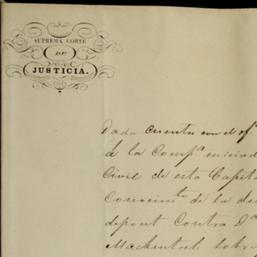 SUPREMA CORTE
DE
JUSTICIA.
Dada cuenta con el of
de la Comp.ª iniciad
Civil de esta Capit
Conocim.to de la de
depont Contra D.ª
Mackintosh sobr